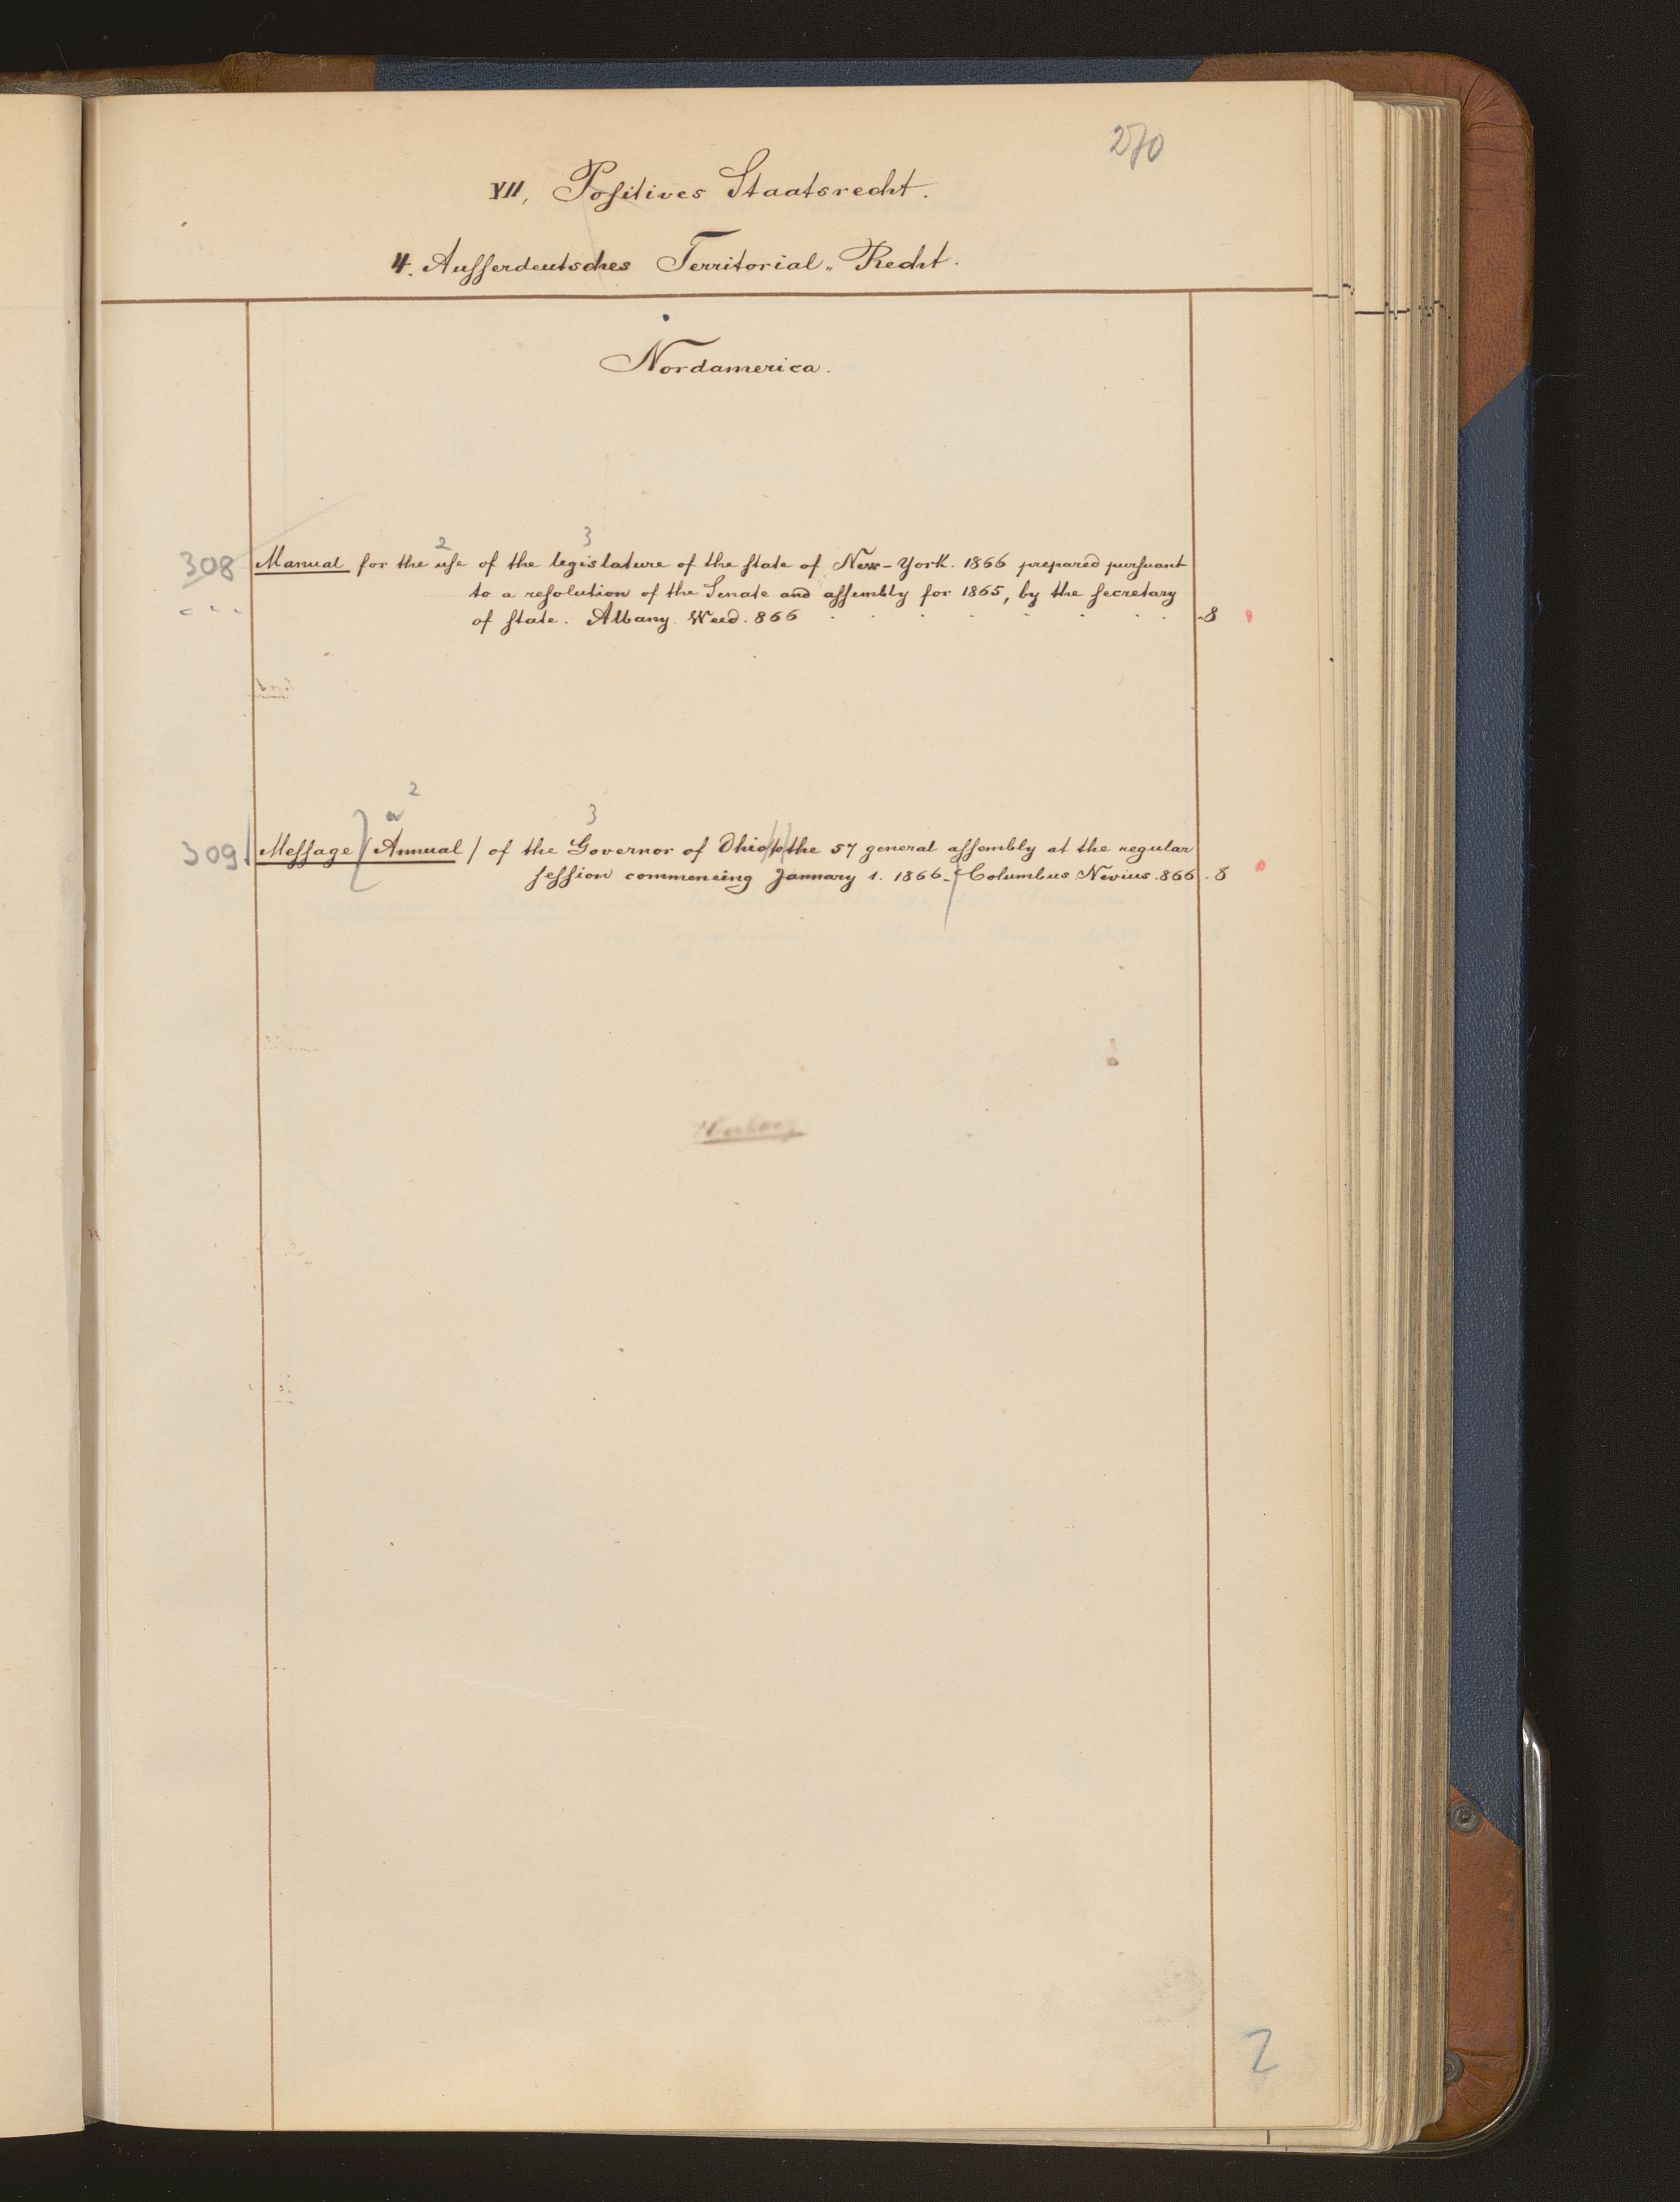 270
VII, Poſitives Staatsrecht.
4. Auſſerdeutsches Territorial„ Recht.
Nordamerica.
2 3
308 Manual for the uſe of the legislature of the ſtate of New-York. 1866 prepared purſuant
to a reſolution of the Senate and aſſembly for 1865, by the ſecretary
of ſtate. Albany Weed. 866 . . . . . . . 8
a 2 3
309 Meſſage (Annual) of the Governor of Ohio to the 57 general aſſembly at the regular
ſeſſion commencing January 1. 1866. Columbus Nevius. 866. 8
2